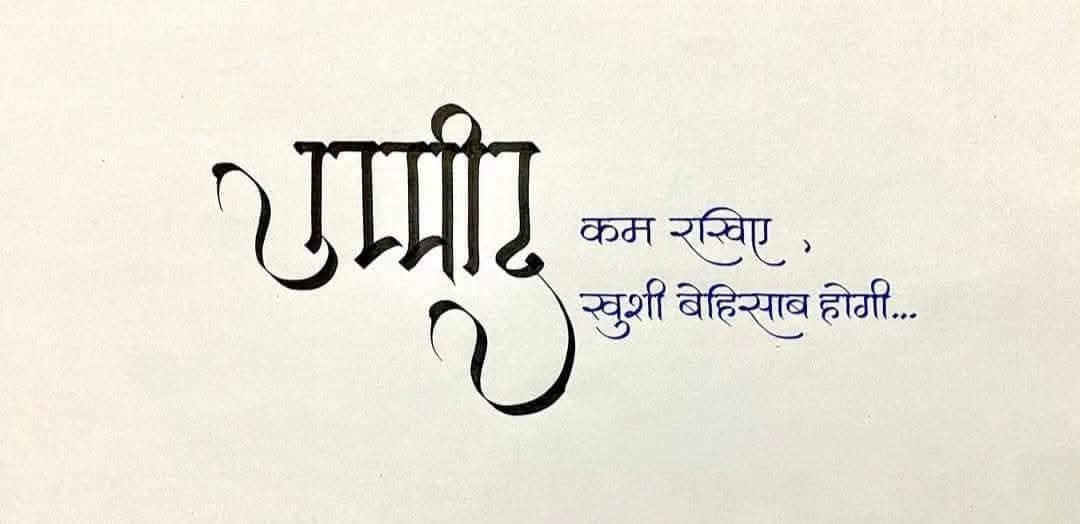 उम्मीद कम रखिए ,
खुशी बेहिसाब होगी...